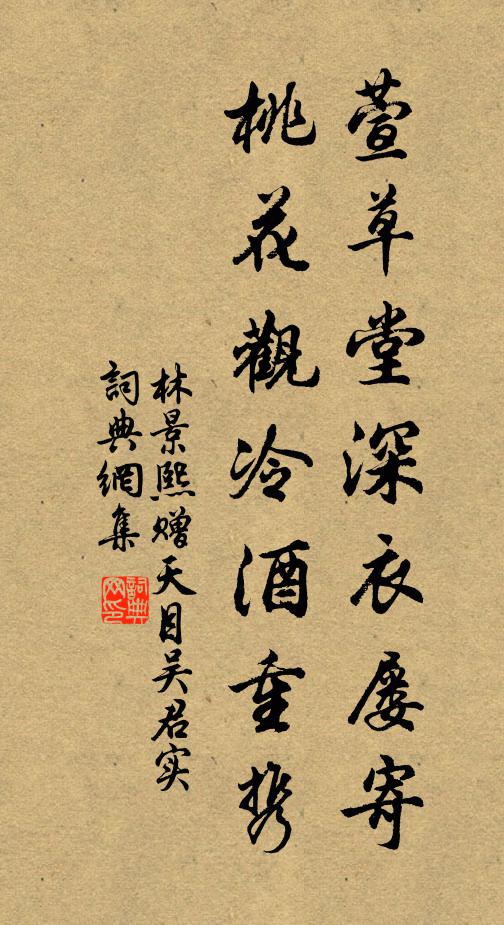 萱草堂深衣屡寄
桃花觀冷酒重携
林景熙赠天目吴君实
詞典網集
詞典网印